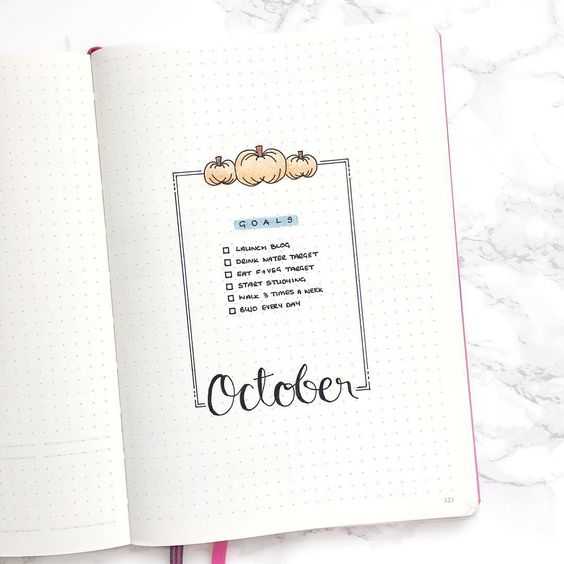 GOALS
LAUNCH BLOG
DRINK WATER TARGET
EAT F+VEG TARGET
START STUDYING
WALK 3 TIMES A WEEK
BUJO EVERY DAY
October